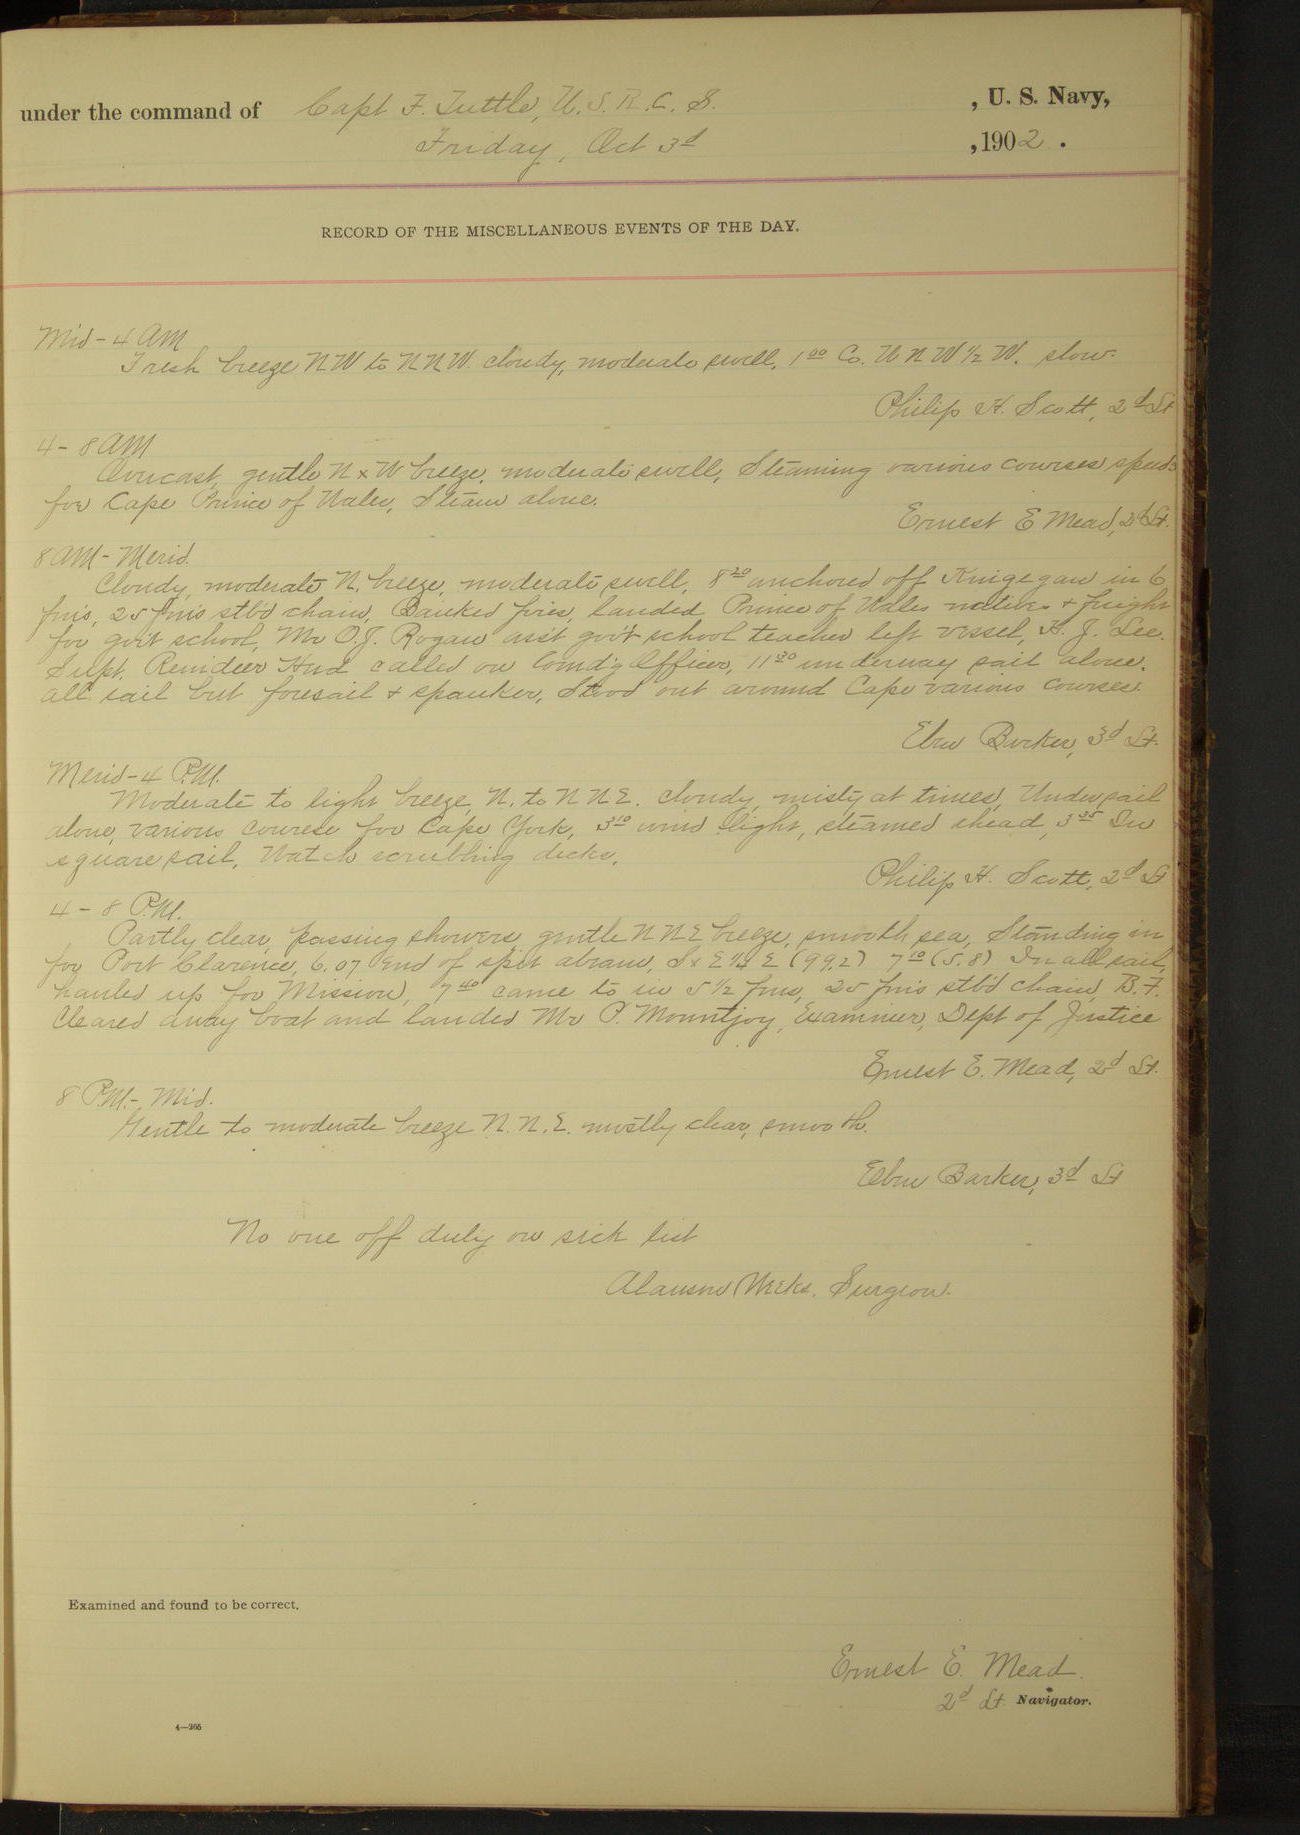 under the command of Capt F. Tuttle, U. S. R. C. S. , U. S. Navy,
Friday, Oct 3d , 1902 .
RECORD OF THE MISCELLANEOUS EVENTS OF THE DAY.
Mid - 4 AM
Fresh breeze NW to NNW. cloudy, moderate swell, 1 00 Co. W N W 1/2 W. slow.
Philip H. Scott, 2d Lt
4 - 8 AM
Overcast, gentle N x W breeze, moderate swell, Steaming various courses speeds
for Cape Prince of Wales, Steam alone.
Ernest E Mead, 2d Lt.
8 AM - Merid.
Cloudy, moderate N. breeze, moderate swell, 8 20 anchored off Kingegan in 6
fms, 25 fms stb'd chain, Banked fires, landed Prince of Wales natives & freight
for gov't school, Mr O. J. Rogan ass't gov't school teacher left vessel, H. J. Lee.
Supt. Reindeer Herd called on Comd'g Officer, 11 30 underway sail alone.
all sail but foresail & spanker, Stood out around Cape various courses.
Eben Barker, 3d Lt.
Merid - 4 P.M.
Moderate to light breeze, N. to N N E. cloudy, misty at times, Under sail
alone, various courses for Cape York, 3 10 wind light, steamed ahead, 3 35 In
square sail, Watch scrubbing decks.
Philip H. Scott, 2d Lt
4 - 8 P.M.
Partly clear, passing showers, gentle N N E breeze, smooth sea, Standing in
for Port Clarence, 6.07 End of spit abeam, S x E 1/4 E (99.2) 7 10 (5.8) In all sail,
hauled up for Mission, 7 40 came to in 5 1/2 fms, 25 fms stb'd chain, B. F.
Cleared away boat and landed Mr P. Mountjoy, Examiner, Dept of Justice
Ernest E. Mead, 2d Lt.
8 P.M. - Mid.
Gentle to moderate breeze N. N. E. mostly clear, smooth.
Eben Barker, 3d Lt
No one off duty on sick list
Alanson Weeks, Surgeon.
Examined and found to be correct.
Ernest E. Mead.
2d Lt. Navigator.
4—365